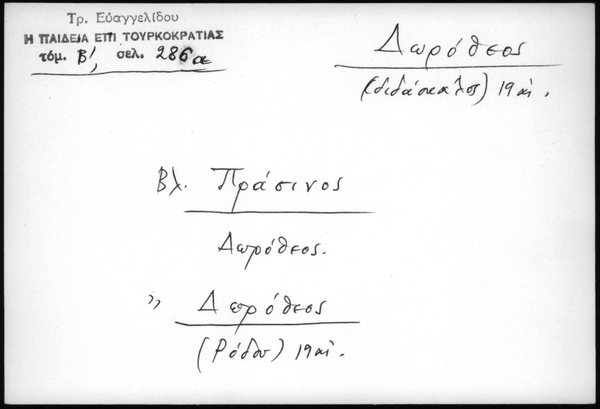 Τρ. Εὐαγγελίδου
Η ΠΑΙΔΕΙΑ ΕΠΙ ΤΟΥΡΚΟΚΡΑΤΙΑΣ
τόμ. Β', σελ. 286α
Δωρόθεος
(διδάσκαλος) 19 αἰ.
Βλ. Πράσινος
Δωρόθεος.
" Δωρόθεος
(Ρόδου) 19 αἰ.